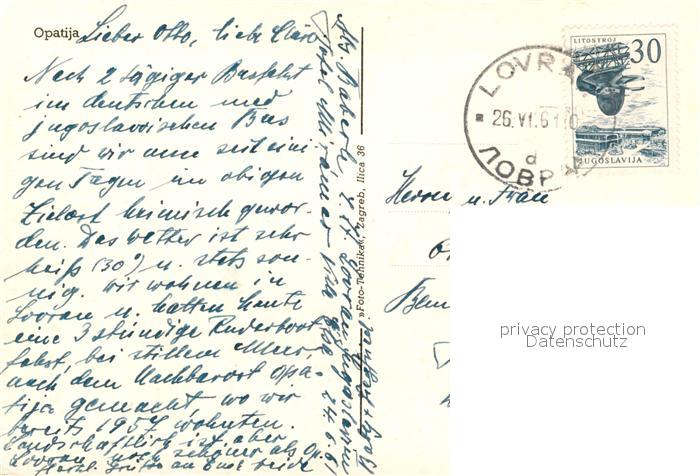 Opatija
Lieber Otto, liebe Cläre
Nach 2 tägiger Busfahrt
im deutschen und
jugoslawischen Bus
sind wir nun seit eini
gen Tagen im obigen
Zielort heimisch gewor-
den. Das Wetter ist sehr
heiß (30°) u. stets son-
nig. Wir wohnen in
Lovran u. hatten heute
eine 3 stündige Ruderboot
fahrt, bei stillem Meer,
nach dem Nachbarort Opa-
tija gemacht, wo wir
bereits 1957 wohnten.
Landschaftlich ist aber
Lovran noch schöner als Op.
Herzl. Grüße an Euch beide
Hotel Miramar
24.6.61
»Foto-Tehnika«, Zagreb, Ilica 36
LITOSTROJ
30
JUGOSLAVIJA
LOVR
26.VI.61
d
ЛОВР
Herrn u. Frau
privacy protection
Datenschutz